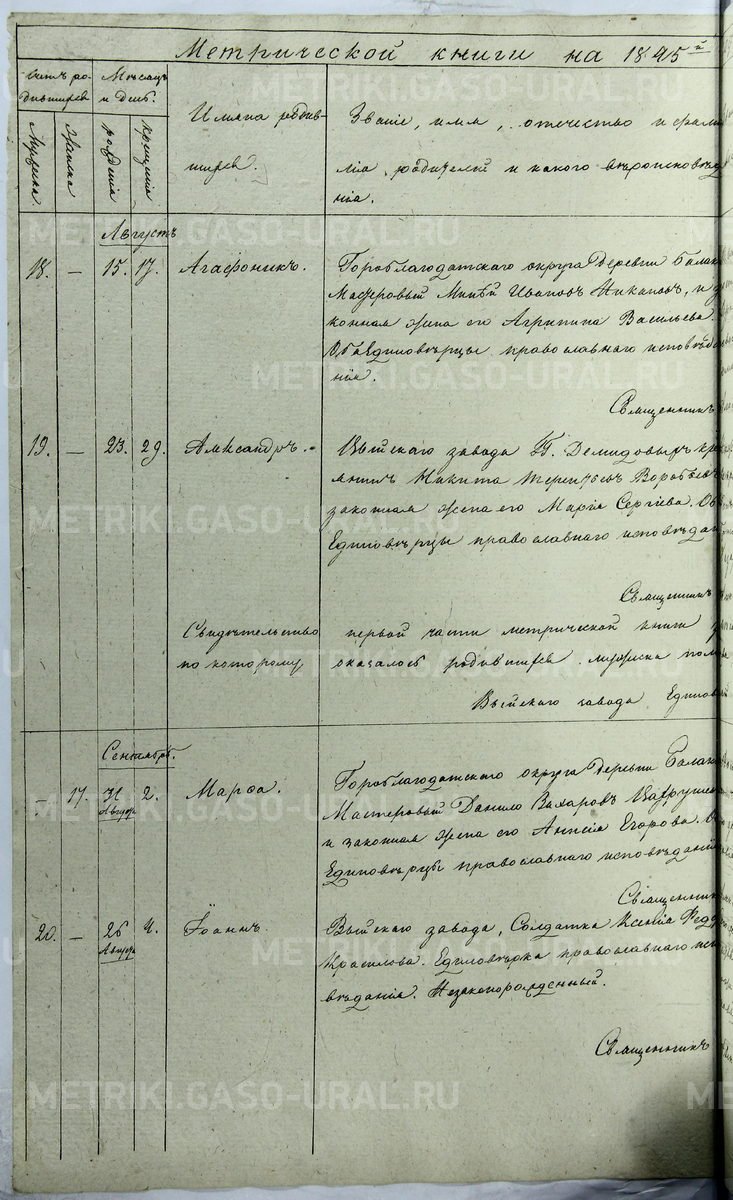 Метрической книги на 1845й
Счетъ ро-
дившихся
Мѣсяцъ
и день.
Мужска.
Женска
рожденія
крещенія
Имяна родив-
шихся.
Званіе, имя, отечество и фами
лія, родителей и какого вѣроисповѣда
нія.
Августъ
18. — 15. 17. Агафоникъ. Гороблагодатскаго округа Деревни Балак
Мастеровый Ивановъ и за
конная жена его Агрипина Васильева
Оба Единовѣрцы православнаго исповѣда
нія.
Священникъ
19. — 23. 29. Александръ. Выйскаго завода Г. Демидовыхъ кре
Никита Терентьевъ Воробьевъ
законная жена его Марія Сергіева. Об
Единовѣрцы православнаго исповѣдан
Священникъ
Свидѣтельство первой части метрической книги
по которому оказалось родившихся мужеска пола
Выйскаго завода Единов
Сентябрь.
— 17. 31 Август 2. Марѳа. Гороблагодатскаго округа Деревни Балак
Мастеровый Данило Захаровъ
и законная жена его Анисія Егорова.
Единовѣрцы православнаго исповѣданія
Священникъ
20. — 26 Август 4. Іоаннъ. Выйскаго завода, Солдатка Ксенія Федо
Единовѣрка православнаго испо
вѣданія. Незаконорожденный.
Священникъ
METRIKI.GASO-URAL.RU